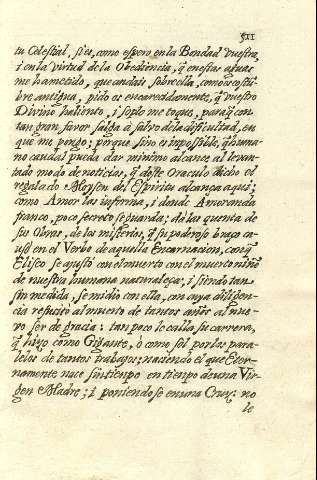 511
tu Celestial, si es, como espero en la Bondad vuestra,
i en la virtud de la Obediencia, q̃ en estas aguas
me ha metido, que andais sobre ella, como es costũ
bre antigua, pido os encarecidamente, q̃ vuestro
Divino haliento, i soplo me toque, para q̃ con
tan gran favor salga a salvo de la dificultad, en
que me pongo; porque sino es impossible, q̃ huma-
no caudal pueda dar minimo alcance al levan-
tado modo de noticias, q̃ deste Oraculo dicho el
regalado Moysen del Espiritu alcança aqui;
como Amor las informa, i donde Amor anda
franco, poco secreto se guarda; da las quenta de
sus Obras, de los misterios, q̃ su poderoso braço cau-
só en el Verbo de aquella Encarnacion, con q̃
Eliseo se ajustó con el muerto niño
de nuestra humana naturaleza, i siendo tan
sin medida, se midio con ella, con cuya diligen-
cia resucitó al muerto de tantos años al nue-
vo ser de gracia: tan poco le calla su carrera,
q̃ hizo como Gigante, ò como sol por los para-
lelos de tantos trabajos; naciendo el que Eter-
namente nace sin tiempo en tiempo de una Vir-
gen Madre; i poniendose en una Cruz: no
le